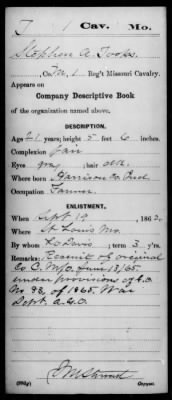 T 1 Cav. Mo.
Stephen A. Toops
, Co. M, 1 Reg't Missouri Cavalry.
Appears on
Company Descriptive Book
of the organization named above.
DESCRIPTION.
Age 21 years; height 5 feet 6 inches.
Complexion fair
Eyes gray; hair
Where born Harrison Co. Ind.
Occupation Farmer
ENLISTMENT.
When Sept 19, 186
Where St Louis Mo.
By whom Davis; term 3 y'rs.
Remarks: Recruit of original
Co C. M/O. June 13/65
under provisions of G.O
No 83, of 1865, War
Dept. A.G.O.
Copyist.